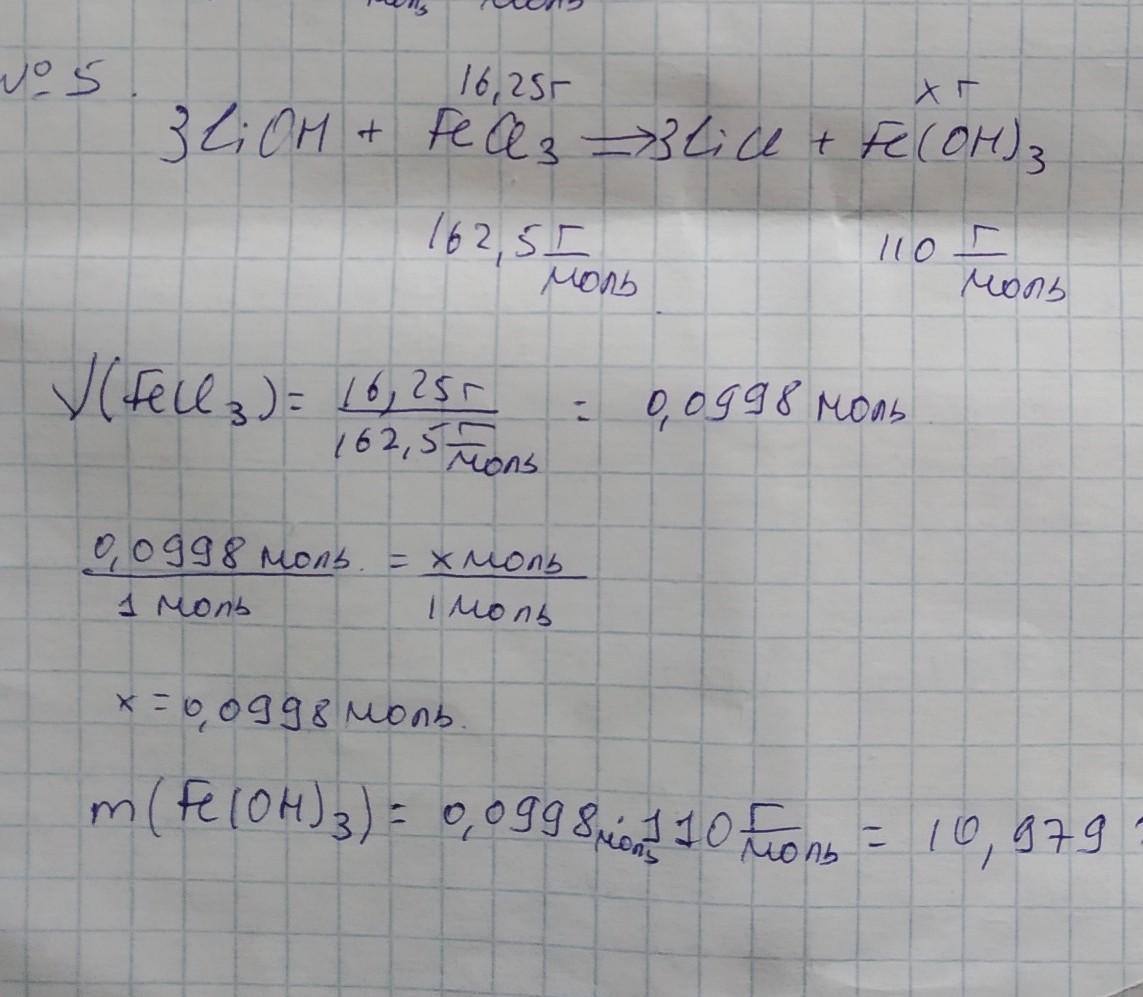 № 5.
16,25г х г
3LiOH + FeCl₃ ⇒ 3LiCl + Fe(OH)₃
162,5 г/моль 110 г/моль
√(FeCl₃) = 16,25г / 162,5 г/моль = 0,0998 моль
0,0998 моль / 1 моль = х моль / 1 моль
х = 0,0998 моль.
m(Fe(OH)₃) = 0,0998 моль · 110 г/моль = 10,979